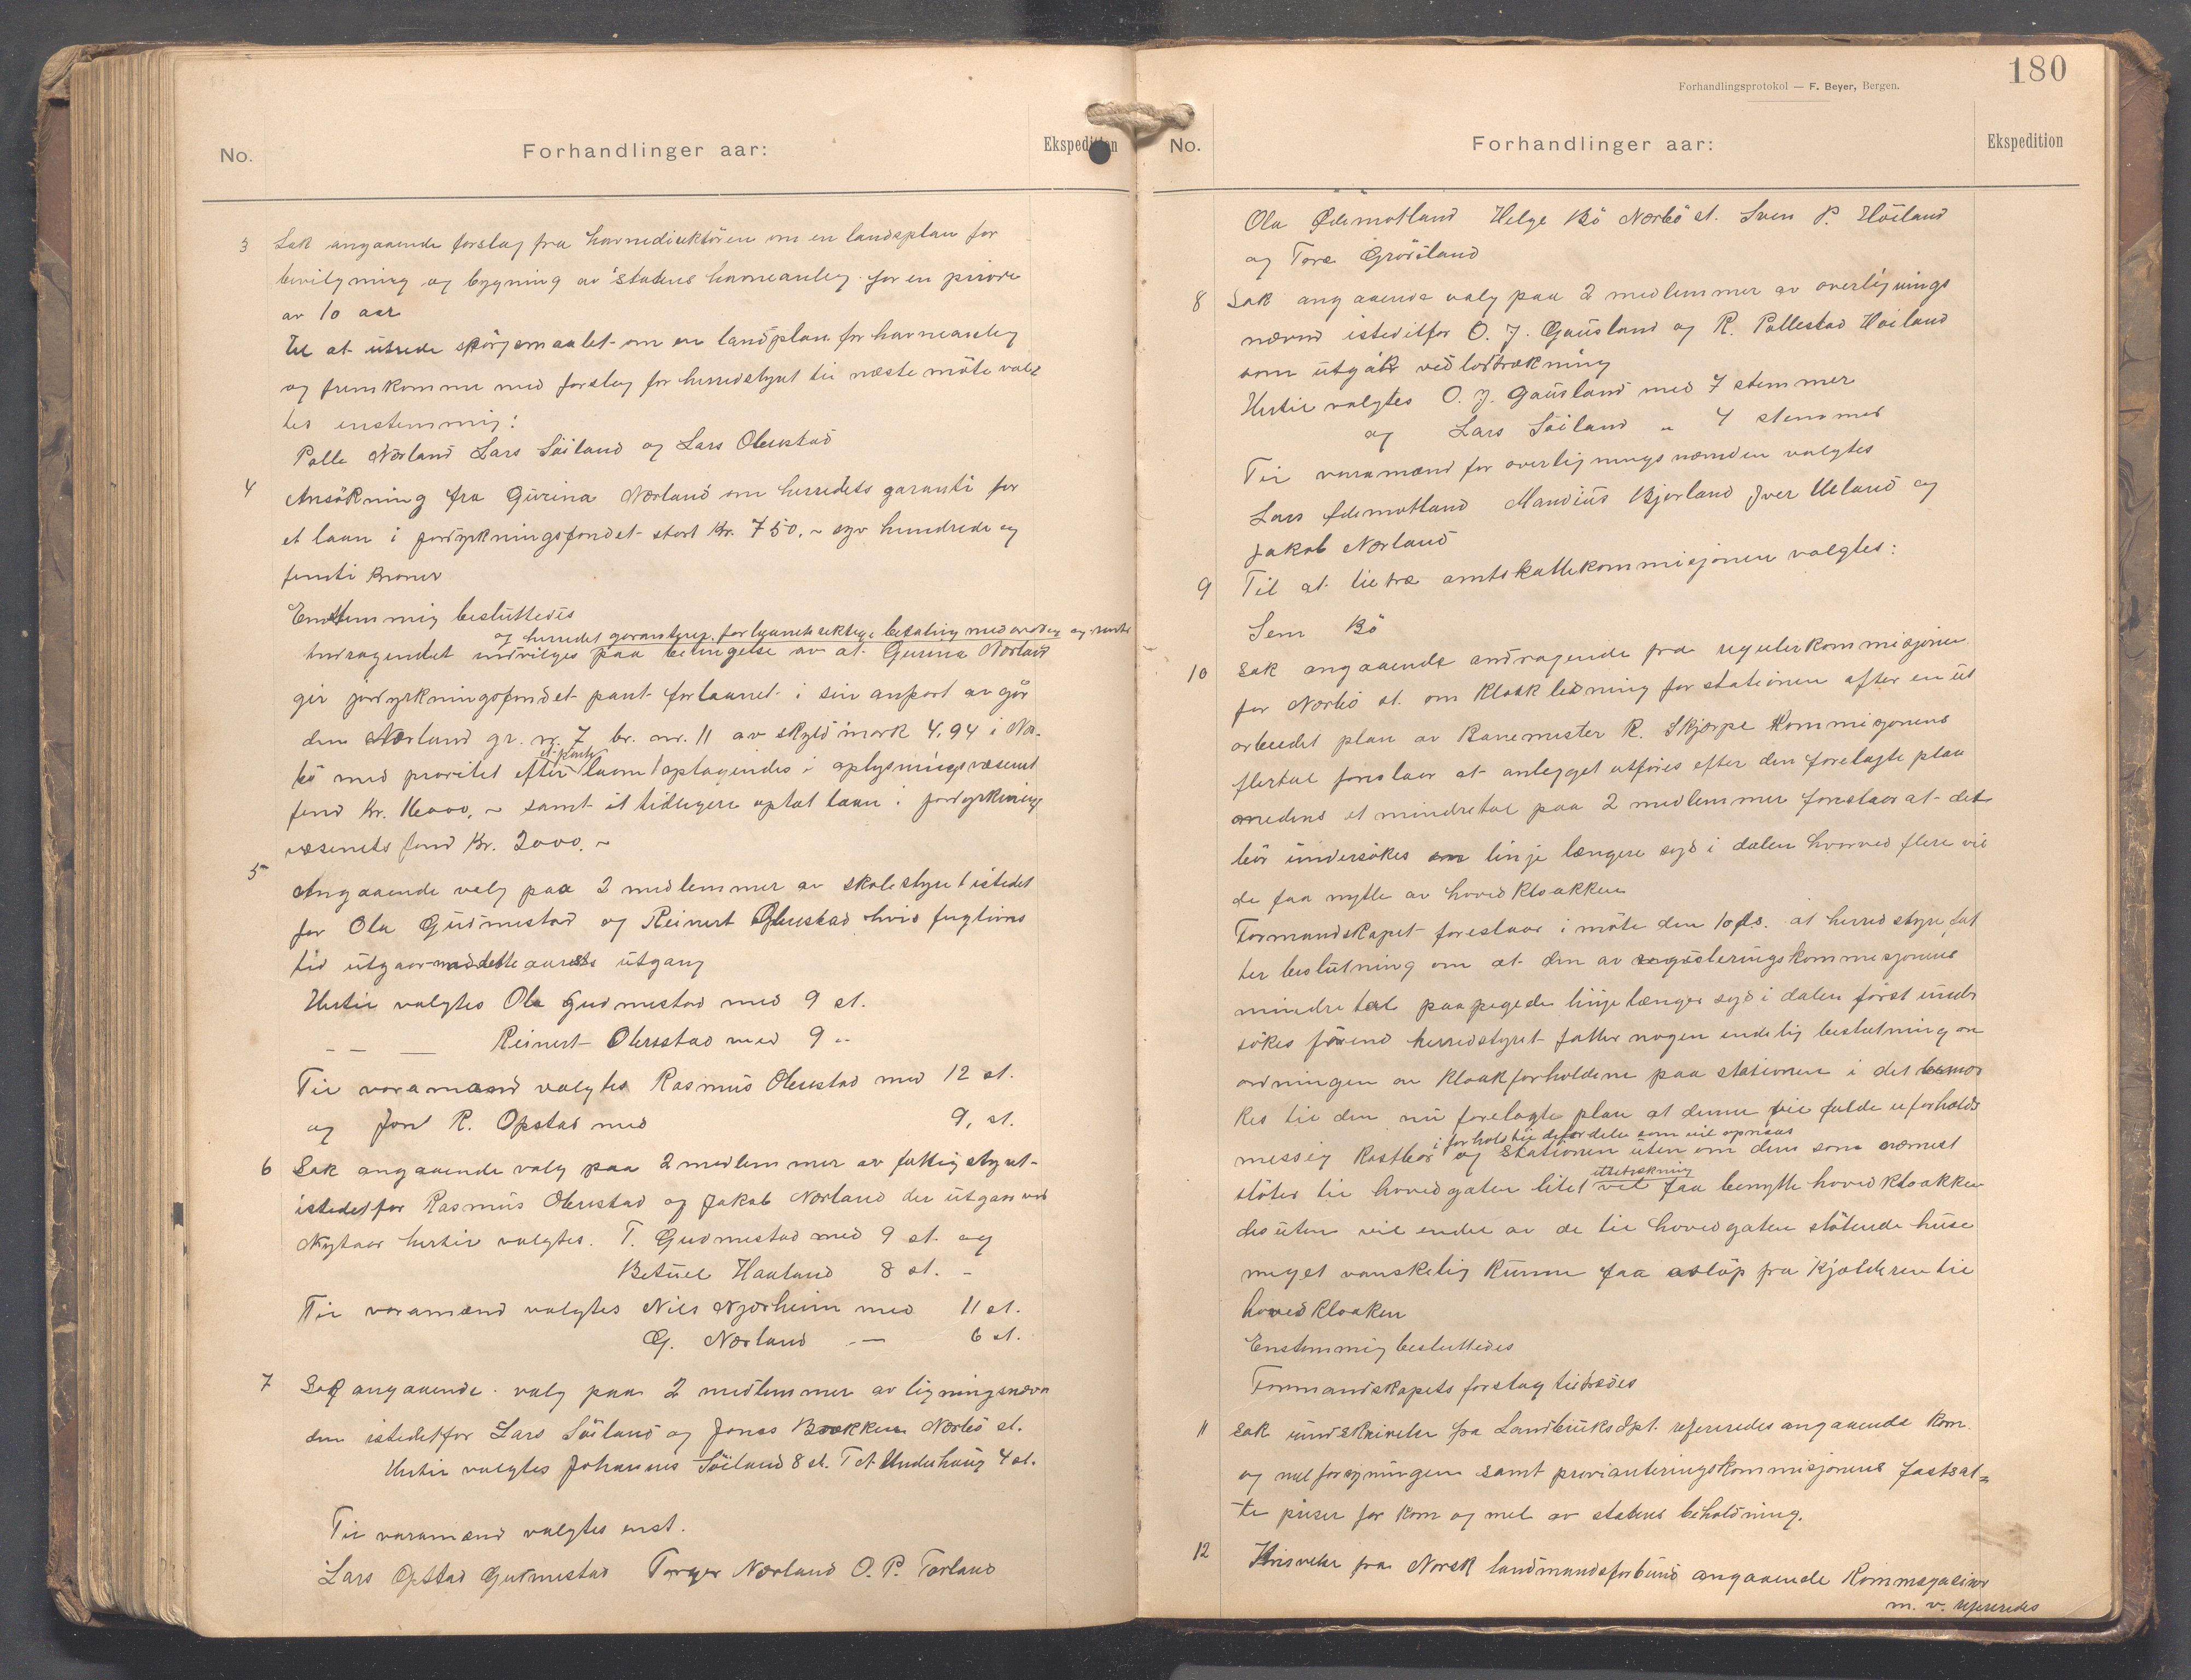 No.
Forhandlinger aar:
Ekspedition
3 Sak angaaende forslag fra havnedirektören om en landsplan for
bevilgning og bygning av statens havneanleg for en periode
av 10 aar
Til at utrede spörgsmaalet om en landsplan for havneanleg
og fremkomme med forslag for herredstyret til næste möte valg
tes enstemmig:
Palle Nærland Lars Söiland og Lars Obrestad
4 Ansökning fra Gurina Nærland om herredets garanti for
et laan i jordyrkningsfondet stort Kr. 750.~ syv hundrede og
femti kroner
Enstemmig besluttedes
og herredet garanterer for laanets riktige betaling med avdrag og renter
Andragendet indvilges paa betingelse av at Gurina Nærland
gir jordyrkningsfondet pant for laanet i sin anpart av går
den Nærland gr. nr. 7 br. nr. 11 av skyld mark 4,94 i Nær-
bö med prioritet efter et paatænkt laan optagendes i oplysningsvæsenets
fond Kr. 16000,~ samt et tidligere optat laan i jordyrknings
væsenets fond Kr. 2000.~
5 Angaaende valg paa 2 medlemmer av skolestyret istedet
for Ola Gudmestad og Reinert Obrestad hvis funktions
tid utgaar med dette aarets utgang
Hertil valgtes Ola Gudmestad med 9 st.
— — Reinert Obrestad med 9 "
Til varamænd valgtes Rasmus Obrestad med 12 st.
og Jon R. Opstad med 9, st.
6 Sak angaaende valg paa 2 medlemmer av fattigstyret
istedetfor Rasmus Obrestad og Jakob Nærland der utgaar ved
Nytaar hertil valgtes. T. Gudmestad med 9 st. og
Betuel Haaland 8 st. -
Til varamænd valgtes Nils Njærheim med 11 st.
G. Nærland — 6 st.
7 Sak angaaende valg paa 2 medlemmer av ligningsnævn
den istedetfor Lars Söiland og Jonas Bakken Nærbö st.
Hertil valgtes Johannes Söiland 8 st. T. A. Underhaug 4 st.
Til varamænd valgtes enst.
Lars Opstad Gudmestad Torger Nærland O. P. Torland
Forhandlingsprotokol — F. Beyer, Bergen.
180
No.
Forhandlinger aar:
Ekspedition
Ola Ødemotland Helge Bö Nærbö st. Sven P. Höiland
og Tore Gröiland
8 Sak angaaende valg paa 2 medlemmer av overlignings
nævnd istedetfor O. J. Gausland og R. Pollestad Höiland
som utgåtr ved lodtrækning
Hertil valgtes O. J. Gausland med 7 stemmer
og Lars Söiland " 4 stemmer
Til varamænd for overligningsnævnden valgtes
Lars Ødemotland Mandius Bjorland Iver Ueland og
Jakob Nærland
9 Til at tiltræ amtskattekommisjonen valgtes:
Sem Bö
10 Sak angaaende andragende fra regulerkommisjonen
for Nærbö st. om kloakledning for stationen efter en ut
arbeidet plan av Banemester R. Skjærpe Kommisjonens
flertal foreslaar at anlegget utföres efter den forelagte plan
medens et mindretal paa 2 medlemmer foreslaar at det
bör undersökes en linje længere syd i dalen hvorved flere vil
de faa nytte av hovedkloakken
Formandskapet foreslaar i möte den 10 ds. at herredstyre fat
ter beslutning om at den av reguleringskommisjonens
mindretal paapegede linje længer syd i dalen först under
sökes förend herredstyret fatter nogen endelig beslutning om
ordningen av kloakforholdene paa stationen i det bemær
kes til den nu forelagte plan at denne vil falde uforholds
messig kostbar i forhold til de fordele som vil opnaaes og stationen uten om dem som nærmest
stöter til hovedgaten litet vil faa benytte hovedkloakken
desuten vil endel av de til hovedgaten stötende huse
meget vanskelig kunne faa avlöp fra kjelderen til
hovedkloaken
Enstemmig besluttedes
Formandskapets forslag tiltrædes
11 Sak rundskrivelse fra Landbruksdpt. refereredes angaaende korn
og melforsyningen samt provianteringskommisjonens fastsat=
te priser for korn og mel av statens beholdning.
12 Skrivelse fra Norsk landmandsforbund angaaende Kornmagasiner
m. v. refereredes